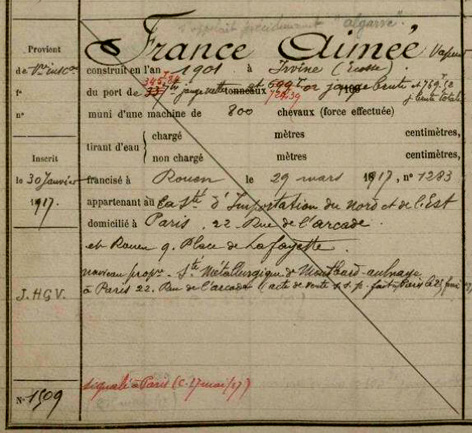 s'appelait précédemment "Algarve".
France Aimée Vapeur
Provient
de 1re insc.on
construit en l'an 1901 à Irvine (Écosse)
fo
du port de 337 345,84 tx jauge nette tonneaux et 699 T or jauge brute et 769.52
729.39 j. brute totale
no muni d'une machine de 800 chevaux (force effectuée)
tirant d'eau { chargé mètres centimètres,
non chargé mètres centimètres,
Inscrit
le 30 Janvier 1917.
francisé à Rouen le 29 mars 1917, no 1283
appartenant au La Sté d'Importation du Nord et de l'Est
domicilié à Paris. 22 Rue de l'arcade
et Rouen 9. Place de Lafayette.
nouveau propr. Sté Métallurgique de Montbard-aulnoye
à Paris 22. Rue de l'arcade (acte de vente s.s.p. fait à Paris le 25
J.H.G.V.
signalé à Paris (C. 27 mai/17)
No 1509